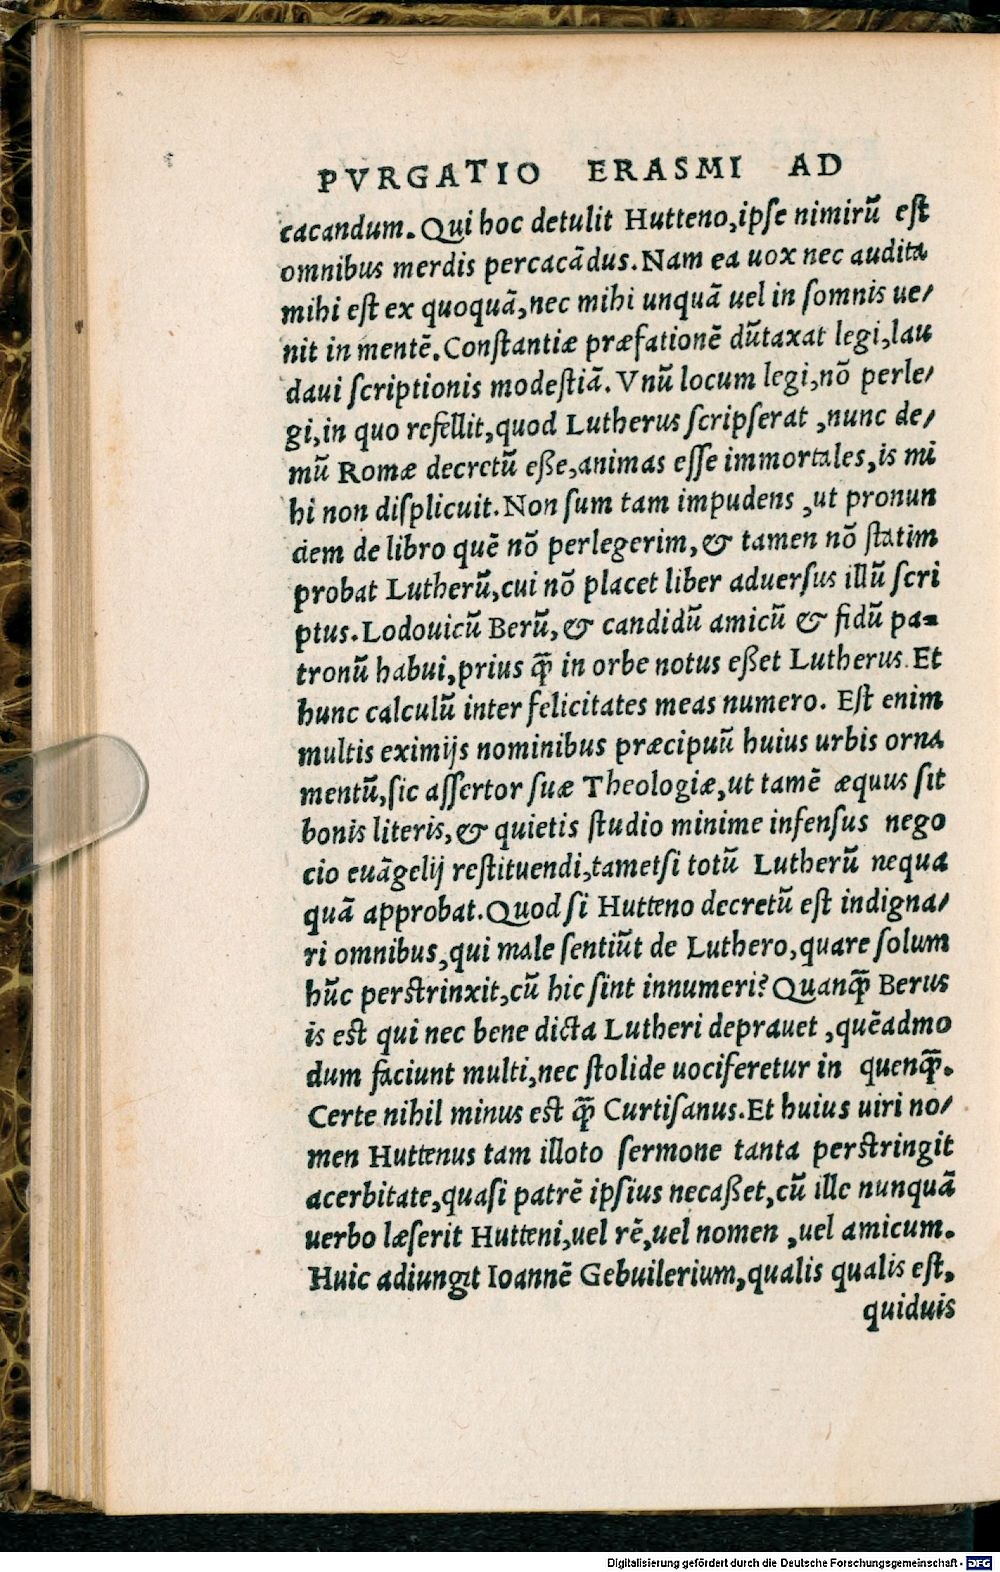 PVRGATIO ERASMI AD
cacandum. Qui hoc detulit Hutteno, ipse nimirũ est
omnibus merdis percacãdus. Nam ea uox nec audita
mihi est ex quoquã, nec mihi unquã uel in somnis ue/
nit in mentẽ. Constantiæ præfationẽ dũtaxat legi, lau
daui scriptionis modestiã. Vnũ locum legi, nõ perle/
gi, in quo refellit, quod Lutherus scripserat, nunc de/
mũ Romæ decretũ eße, animas esse immortales, is mi
hi non displicuit. Non sum tam impudens, ut pronun
ciem de libro quẽ nõ perlegerim, & tamen nõ statim
probat Lutherũ, cui nõ placet liber aduersus illũ scri
ptus. Lodouicũ Berũ, & candidũ amicũ & fidũ pa-
tronũ habui, prius q̃ in orbe notus eßet Lutherus. Et
hunc calculũ inter felicitates meas numero. Est enim
multis eximijs nominibus præcipuũ huius urbis orna
mentũ, sic assertor suæ Theologiæ, ut tamẽ æquus sit
bonis literis, & quietis studio minime infensus nego
cio euãgelij restituendi, tametsi totũ Lutherũ nequa
quã approbat. Quod si Hutteno decretũ est indigna/
ri omnibus, qui male sentiũt de Luthero, quare solum
hũc perstrinxit, cũ hic sint innumeri? Quanq̃ Berus
is est qui nec bene dicta Lutheri deprauet, quẽadmo
dum faciunt multi, nec stolide uociferetur in quenq̃.
Certe nihil minus est q̃ Curtisanus. Et huius uiri no/
men Huttenus tam illoto sermone tanta perstringit
acerbitate, quasi patrẽ ipsius necaßet, cũ ille nunquã
uerbo læserit Hutteni, uel rẽ, uel nomen, uel amicum.
Huic adiungit Ioannẽ Gebuilerium, qualis qualis est,
quiduis
Digitalisierung gefördert durch die Deutsche Forschungsgemeinschaft - DFG